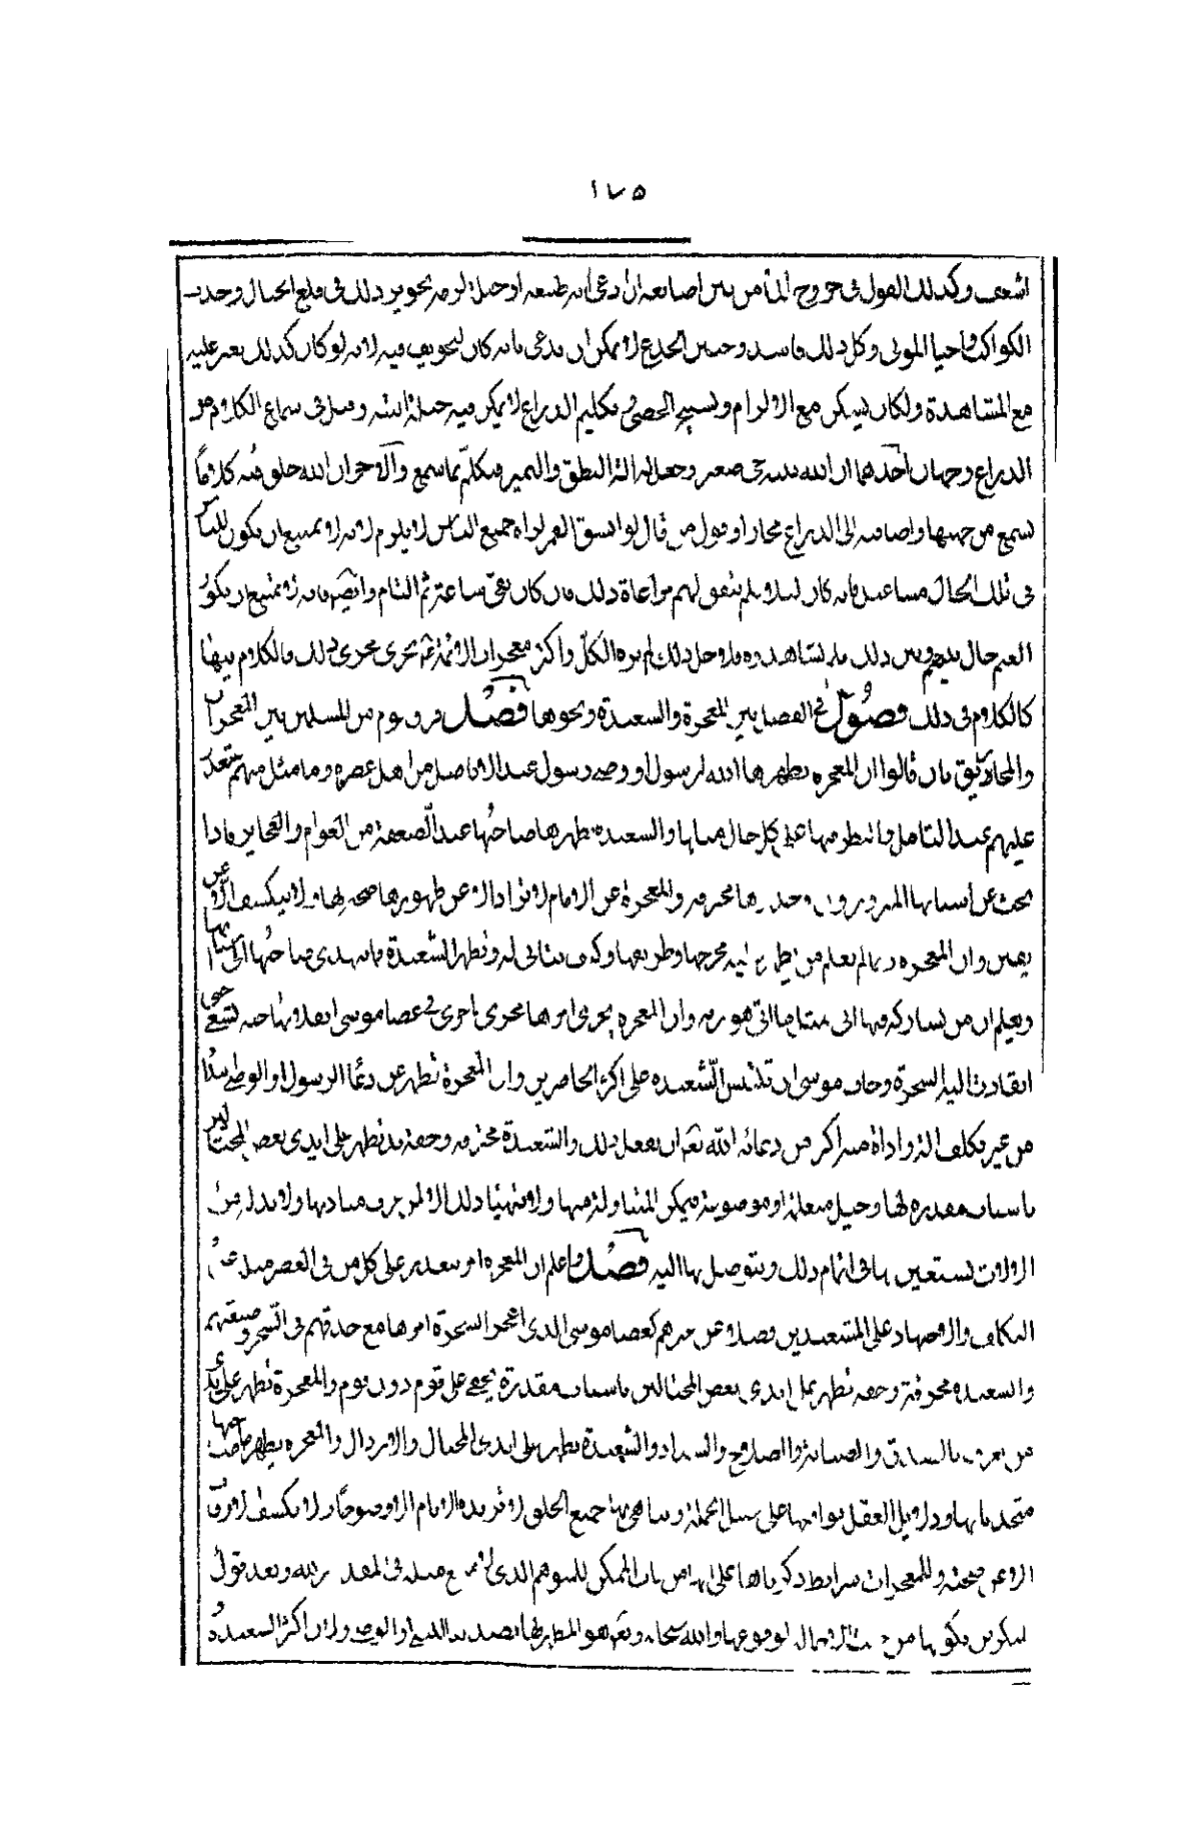 ١٧٥
وكذلك القول في خروج الماء من بين اصابعه ان ادعى انه طبيعة او حيلة لزمه تجويز ذلك في قلع الجبال وجذب
الكواكب واحيا الموتى وكل ذلك فاسد وحنين الجذع لا يمكن ان يدعى بانه كان لتجويف فيه لانه لو كان كذلك لعثر عليه
مع المشاهدة ولكان يسكن مع الالزام وتسبيح الحصى وتكليم الذراع لا يمكن فيه حيلة البتة وقيل في سماع الكلام من
الذراع وجهان احدهما ان الله بنيه حي صغير وجعل له آلة النطق والتمييز فتكلم بما سمع والآخر ان الله خلق فيه كلاما
سمع من جهتها واضافه الى الذراع مجازا وقول من قال لو انشق القمر لراه جميع الناس لا يلزم لانه لا يمتنع ان يكون للناس
في تلك الحال مشاغيل فانه كان ليلا فلم يتفق لهم مراعاة ذلك فانه كان بقي ساعة ثم التام وايضا فانه لا يمتنع ان يكون
الغيم حال بينهم وبين ذلك فلم يشاهدوه فلاجل ذلك لم يره الكل واكثر معجزات الائمة تجرى مجرى ذلك فالكلام فيها
كالكلام في ذلك فصول في الفصل بين المعجزة والشعبذة ونحوها فصل فرق قوم من المسلمين بين المعجزات
والمخاريق بان قالوا ان المعجزة يظهرها الله لرسول او وصي رسول عند الافاضل من اهل عصره وما مثل منهم يتعذر
عليهم عند التامل والنظر فيها على كل حال مثلها والشعبذة يظهرها صاحبها عند الضعفة من العوام والعجايز فاذا
بحث عن اسبابها المبرزون وجدوها مخرقة والمعجزة على الايام لا تزداد الا عن ظهورها صحة لها ولا ينكشف الا عن
يقين وان المعجزة ربما لم يعلم من يظهر عليه مخرجها وطريقها وكيف يتاتى له وتظهر الشعبذة فانه يهدى صاحبها الى اسبابها
ويعلم ان من يشاركه فيها اتى بمثل ما اتى هو به وان المعجزة يجري امرها مجرى ما جرى في عصا موسى انقلابها حية تسعى حتى
انقادت اليه السحرة وخاف موسى ان تلتبس الشعبذة على اكثر الحاضرين وان المعجزة تظهر عن دعاء الرسول او الوصي ابتداء
من غير تكلف آلة واداة منه اكثر من دعائه الله تعالى ان يفعل ذلك والشعبذة مخرقة وخفة يد تظهر على ايدى بعض المحتالين
باسباب مقدرة لها وحيل متعلمة او موضوعة ويمكن المساواة فيها ولا يتهيا ذلك الا لمن عرف مباديها ولا بد له من
الآلات يستعين بها في اتمام ذلك ويتوصل بها اليه فصل واعلم ان المعجزة امر يتعذر على كل من في العصر مثله عند
التكلف والاجتهاد على المشعبذين فضلا عن غيرهم كعصا موسى الذى اعجز السحرة امرها مع حذقهم في السحر وصنعتهم
والشعبذة مخرقة وخفة تظهر على ايدى بعض المحتالين باسباب مقدرة يخفى على قوم دون قوم والمعجزة تظهر على ايدى
من يعرف بالصدق والصيانة والصلاح والسداد والشعبذة يظهر على ايدى المحتال والارذال والمعجزة يظهرها صاحبها
متحديا بها ودلايل العقل يوافيها على سبيل الجملة ويباهى بها جميع الخلق لا تزيده الايام الا وضوحا ولا يكشف الاوقات
الا عن صحته وللمعجزات شرايط ذكرناها على
لوقوعها والله سبحانه وتعالى هو المظهر لها تصديقا لنبي او الوصي ولان اكثر الشعبذة